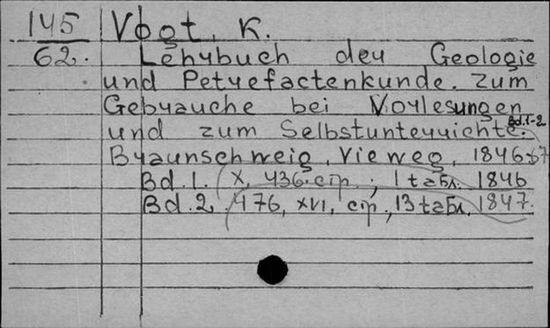 145 Vogt, K.
62. Lehrbuch der Geologie
und Petrefactenkunde. Zum
Gebrauche bei Vorlesungen
und zum Selbstunterrichte. Bd.1-2
Braunschweig, Vieweg, 1846-
Bd. 1. (X, 436 стр.; 1 табл. 1846
Bd. 2. 476, XVI, стр., 13 табл. 1847.